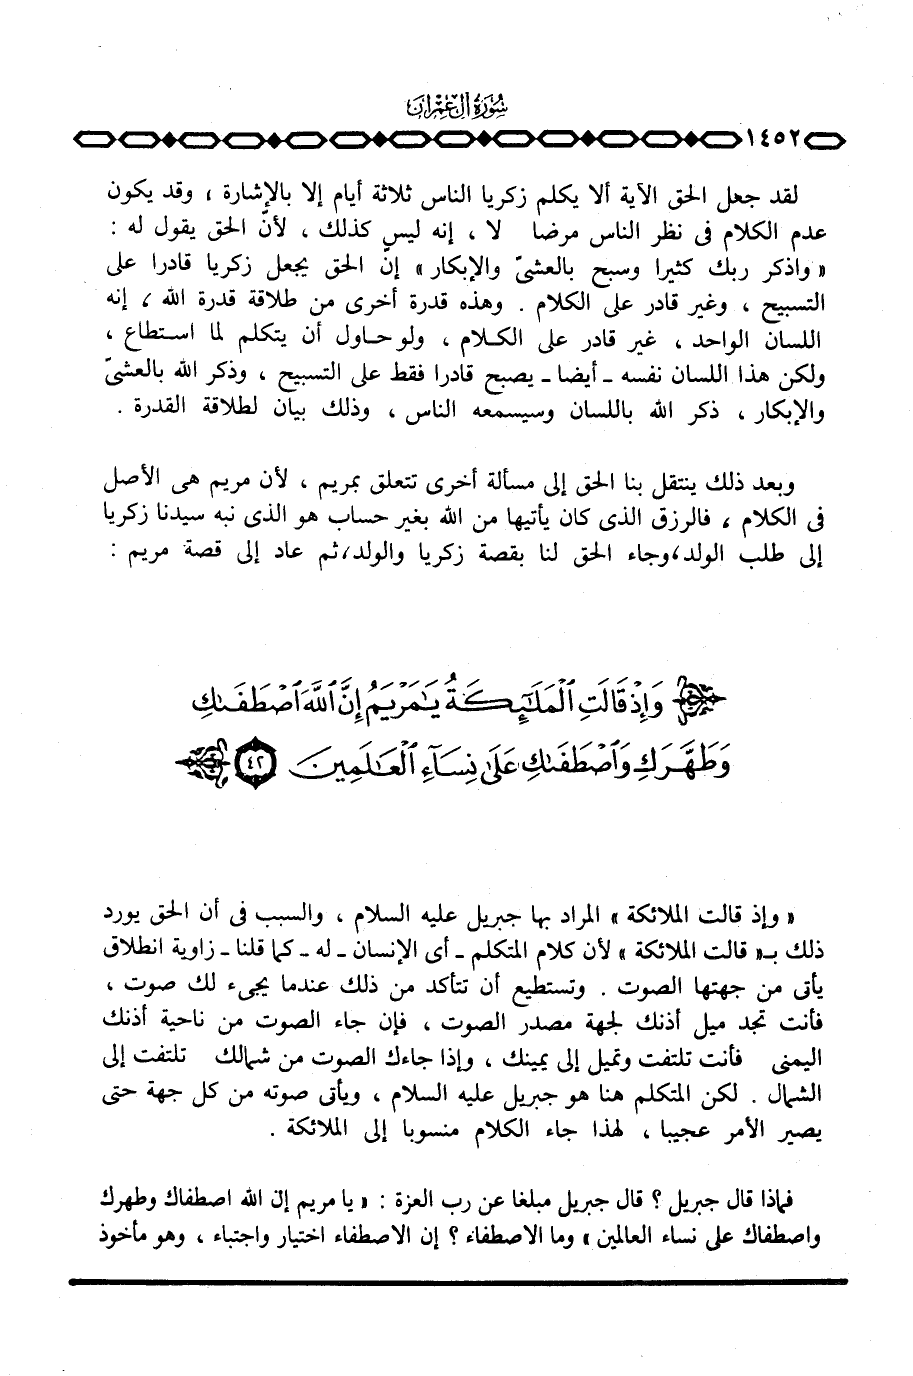 سُورَةُ آلِ عِمْرَانَ
١٤٥٢
لقد جعل الحق الآية ألا يكلم زكريا الناس ثلاثة أيام إلا بالإشارة ، وقد يكون
عدم الكلام فى نظر الناس مرضا لا ، إنه ليس كذلك ، لأنّ الحق يقول له :
« واذكر ربك كثيرا وسبح بالعشىّ والإبكار » إنّ الحق يجعل زكريا قادرا على
التسبيح ، وغير قادر على الكلام . وهذه قدرة أخرى من طلاقة قدرة الله ، إنه
اللسان الواحد ، غير قادر على الكلام ، ولو حاول أن يتكلم لما استطاع ،
ولكن هذا اللسان نفسه ـ أيضا ـ يصبح قادرا فقط على التسبيح ، وذكر الله بالعشىّ
والإبكار ، ذكر الله باللسان وسيسمعه الناس ، وذلك بيان لطلاقة القدرة .
وبعد ذلك ينتقل بنا الحق إلى مسألة أخرى تتعلق بمريم ، لأن مريم هى الأصل
فى الكلام ، فالرزق الذى كان يأتيها من الله بغير حساب هو الذى نبه سيدنا زكريا
إلى طلب الولد،وجاء الحق لنا بقصة زكريا والولد،ثم عاد إلى قصة مريم :
وَإِذْ قَالَتِ ٱلْمَلَٰٓئِكَةُ يَٰمَرْيَمُ إِنَّ ٱللَّهَ ٱصْطَفَىٰكِ
وَطَهَّرَكِ وَٱصْطَفَىٰكِ عَلَىٰ نِسَآءِ ٱلْعَٰلَمِينَ ٤٢
« وإذ قالت الملائكة » المراد بها جبريل عليه السلام ، والسبب فى أن الحق يورد
ذلك بـ« قالت الملائكة » لأن كلام المتكلم ـ أى الإنسان ـ له ـ كما قلنا ـ زاوية انطلاق
يأتى من جهتها الصوت . وتستطيع أن تتأكد من ذلك عندما يجىء لك صوت ،
فأنت تجد ميل أذنك لجهة مصدر الصوت ، فإن جاء الصوت من ناحية أذنك
اليمنى فأنت تلتفت وتميل إلى يمينك ، وإذا جاءك الصوت من شمالك تلتفت إلى
الشمال . لكن المتكلم هنا هو جبريل عليه السلام ، ويأتى صوته من كل جهة حتى
يصير الأمر عجيبا ، لهذا جاء الكلام منسوبا إلى الملائكة .
فماذا قال جبريل ؟ قال جبريل مبلغا عن رب العزة : « يا مريم إن الله اصطفاك وطهرك
واصطفاك على نساء العالمين » وما الاصطفاء ؟ إن الاصطفاء اختيار واجتباء ، وهو مأخوذ